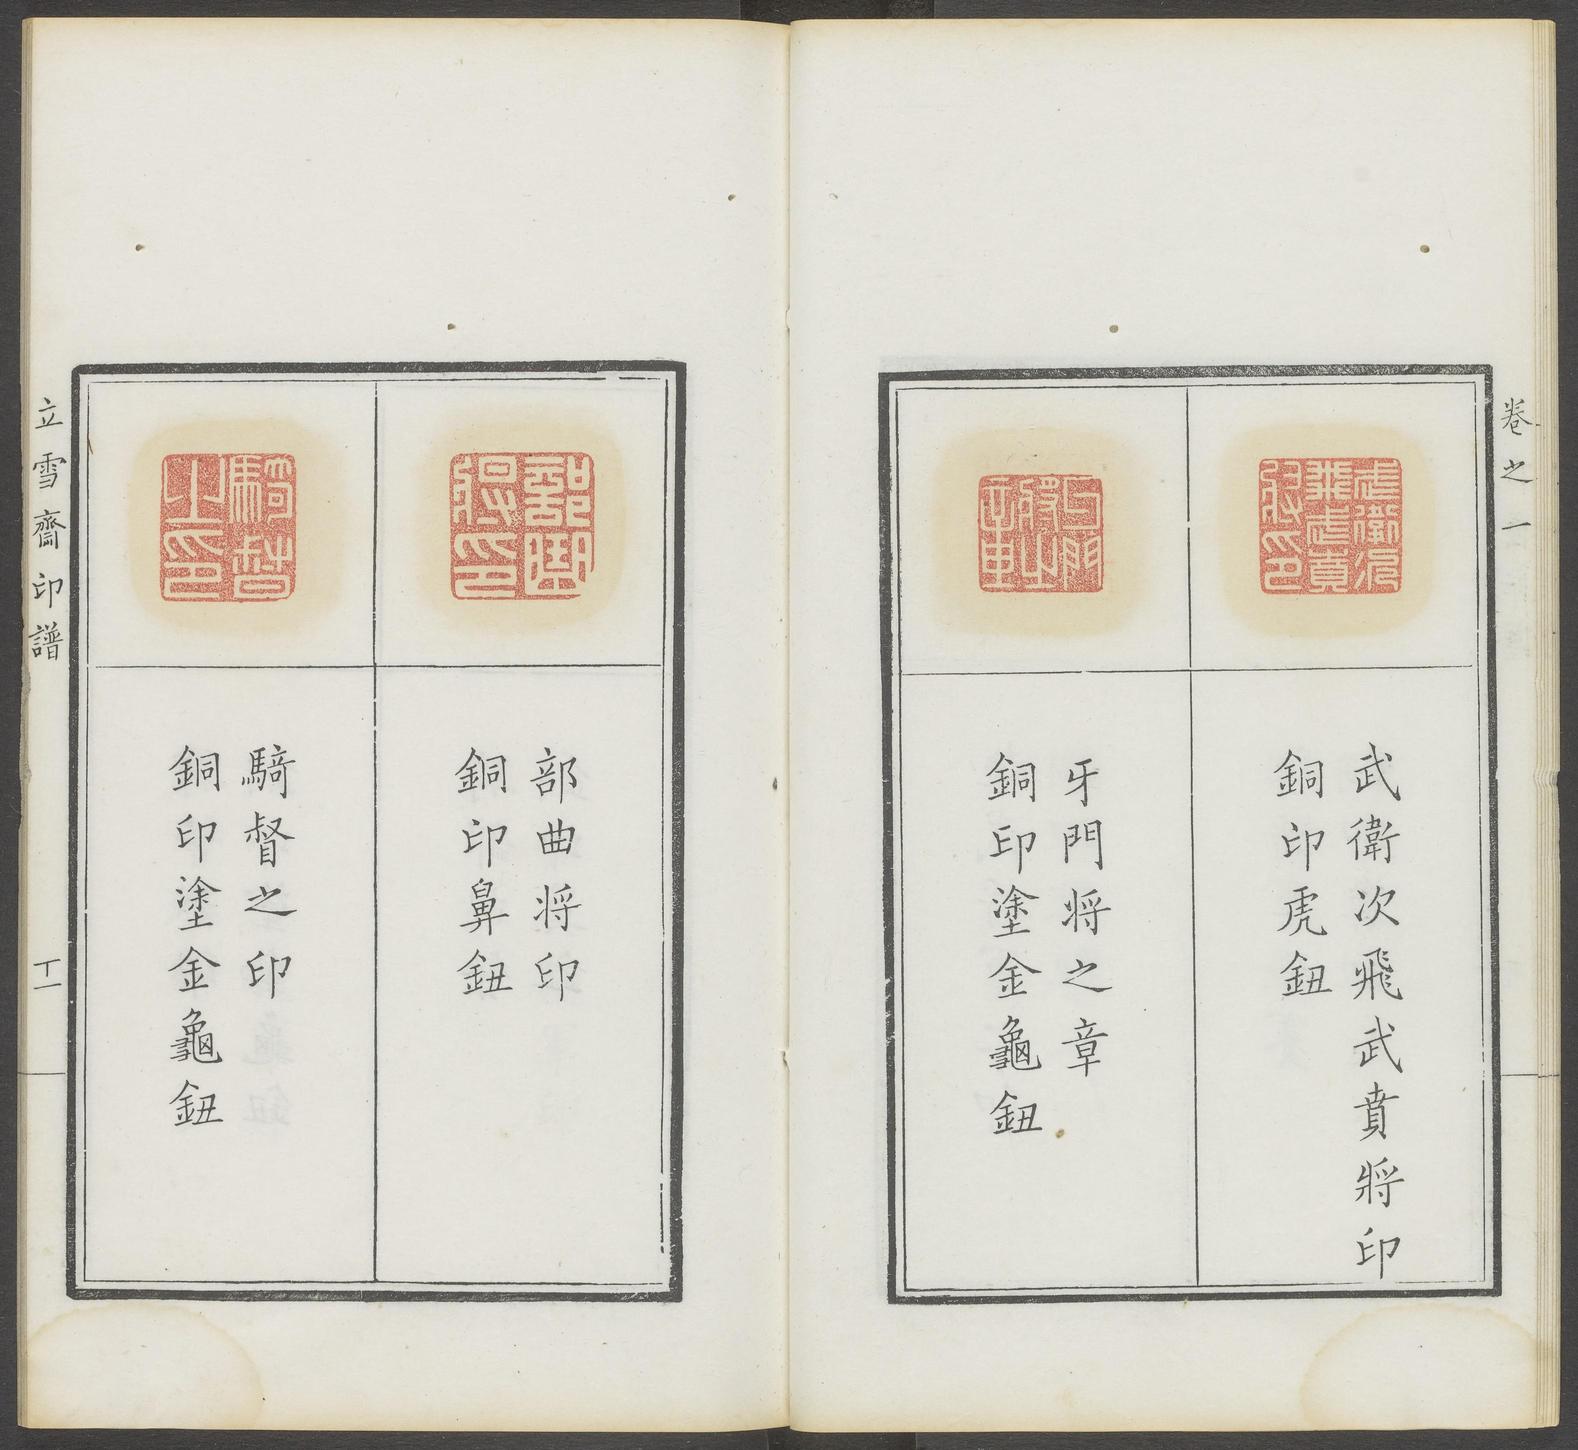 卷之一
武衛次飛武賁將印
銅印虎鈕
牙門将之章
銅印塗金龜鈕
部曲将印
銅印鼻鈕
騎督之印
銅印塗金龜鈕
立雪齋印譜